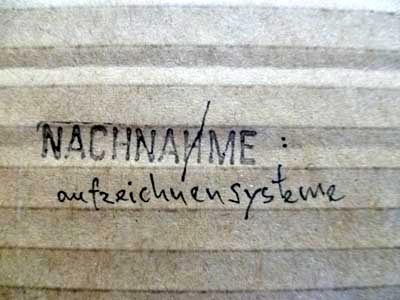 NACHNAHME :
aufzeichnensysteme